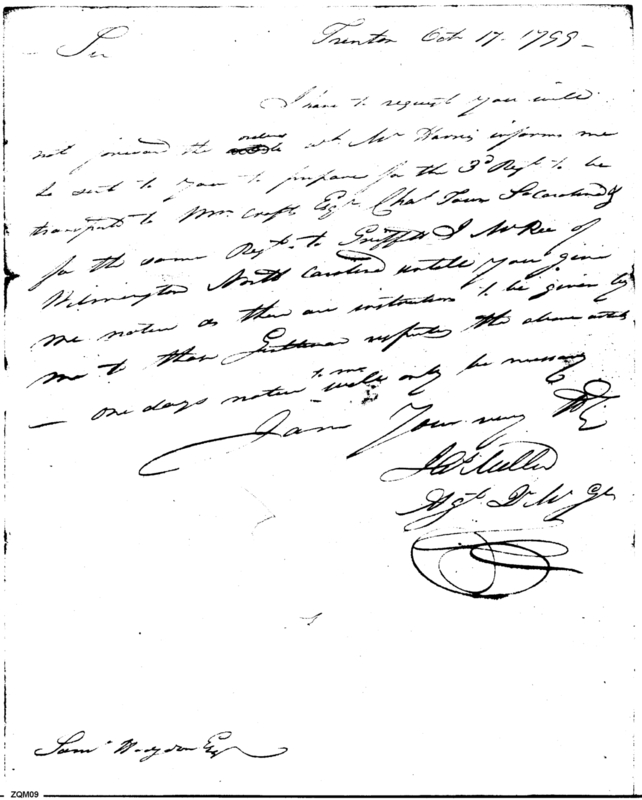 Trenton Octr 17. 1799 -
Sir
I have to request you will
not forward the orders wh Mr Harris informs me
he sent to you to prepare for the 3d Regt to be
transported to Wm Crafts Esqr Charls Town So Carolina &
for the same Regt to Griffith J McRee of
Wilmington North Carolina untill you give
me notice as there are instructions to be given by
me to these Gentlemen respecting the above
— one days notice to me will only be necessary
I am Your very
J Miller
Agt Qr Mr Gl
Saml Hodgdon Esqr
ZQM09